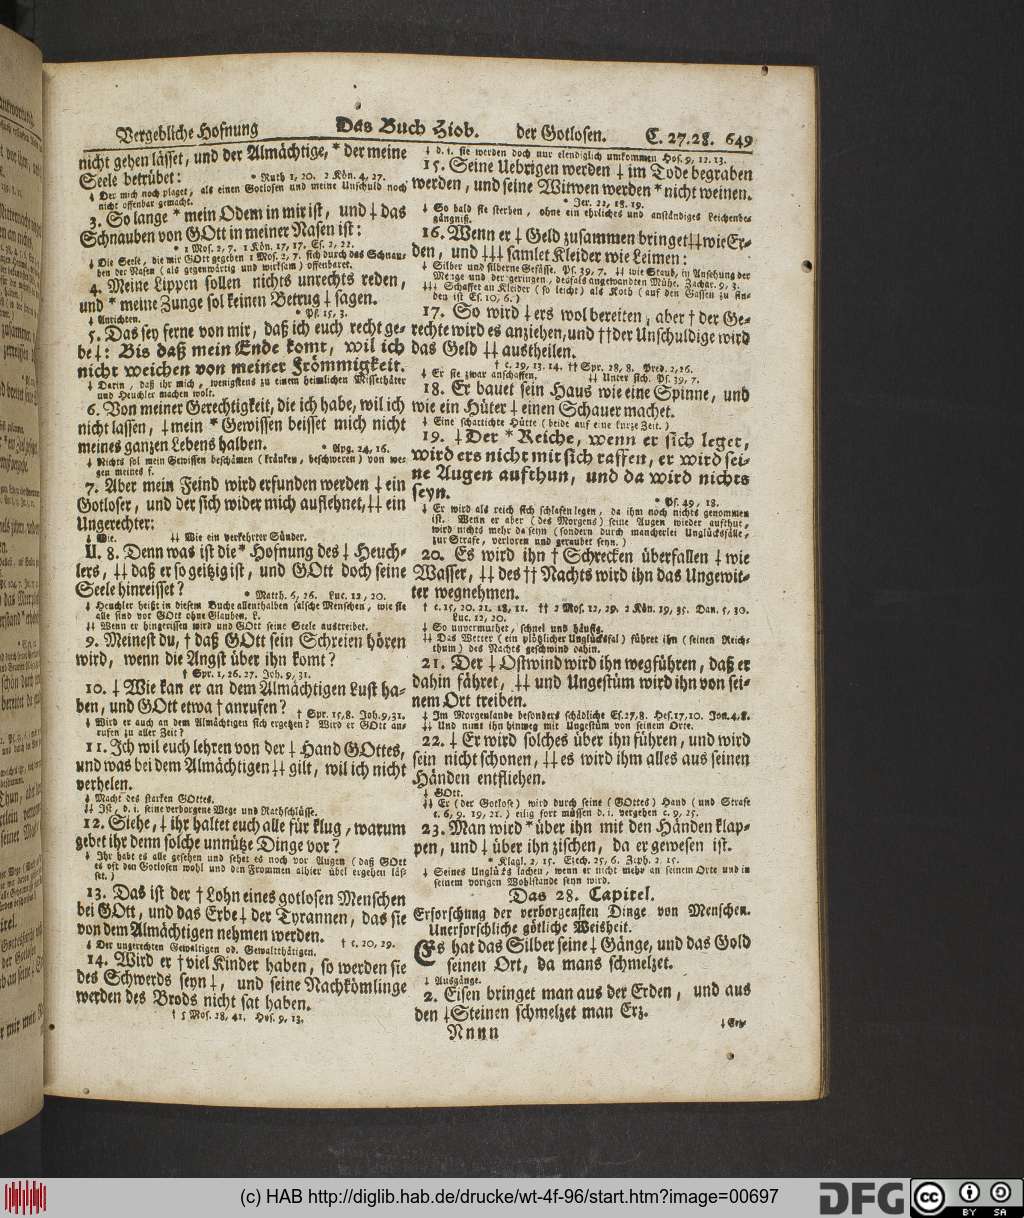 Vergebliche Hofnung Das Buch Hiob. der Gotlosen. C. 27.28. 649
nicht gehen lässet, und der Almächtige, * der meine
Seele betrübet: * Ruth 1, 20. 2 Kön. 4, 27.
⸸ Der mich noch plaget, als einen Gotlosen und meine Unschuld noch
nicht offenbar gemacht.
3. So lange * mein Odem in mir ist, und ⸸ das
Schnauben von GOtt in meiner Nasen ist:
* 1 Mos. 2, 7. 1 Kön. 17, 17. Es. 2, 22.
⸸ Die Seele, die mir GOtt gegeben 1 Mos. 2, 7. sich durch das Schnau-
ben der Nasen (als gegenwärtig und wirksam) offenbaret.
4. Meine Lippen sollen nichts unrechts reden,
und * meine Zunge sol keinen Betrug ⸸ sagen.
⸸ Anrichten. * Ps. 15, 3.
5. Das sey ferne von mir, daß ich euch recht ge-
be⸸: Bis daß mein Ende komt, wil ich
nicht weichen von meiner Frömmigkeit.
⸸ Darin, daß ihr mich, wenigstens zu einem heimlichen Missethäter
und Heuchler machen wolt.
6. Von meiner Gerechtigkeit, die ich habe, wil ich
nicht lassen, ⸸ mein * Gewissen beisset mich nicht
meines ganzen Lebens halben. * Apg. 24, 16.
⸸ Nichts sol mein Gewissen beschämen (kränken, beschweren) von we-
gen meines f.
7. Aber mein Feind wird erfunden werden ⸸ ein
Gotloser, und der sich wider mich auflehnet, ⸸⸸ ein
Ungerechter:
⸸ Wie. ⸸⸸ Wie ein verkehrter Sünder.
II. 8. Denn was ist die * Hofnung des ⸸ Heuch-
lers, ⸸⸸ daß er so geitzig ist, und GOtt doch seine
Seele hinreisset? * Matth. 6, 26. Luc. 12, 20.
⸸ Heuchler heißt in diesem Buche allenthalben falsche Menschen, wie sie
alle sind vor GOtt ohne Glauben, L.
⸸⸸ Wenn er hingerissen wird und GOtt seine Seele austreibet.
9. Meinest du, † daß GOtt sein Schreien hören
wird, wenn die Angst über ihn komt?
† Spr. 1, 26. 27. Joh. 9, 31.
10. ⸸ Wie kan er an dem Almächtigen Lust ha-
ben, und GOtt etwa † anrufen? † Spr. 15, 8. Joh. 9, 31.
⸸ Wird er auch an dem Almächtigen sich ergetzen? Wird er GOtt an-
rufen zu aller Zeit?
11. Ich wil euch lehren von der ⸸ Hand GOttes,
und was bei dem Almächtigen ⸸⸸ gilt, wil ich nicht
verhelen.
⸸ Macht des starken GOttes.
⸸⸸ Ist, d. i. seine verborgene Wege und Rathschlüsse.
12. Siehe, ⸸ ihr haltet euch alle für klug, warum
gebet ihr denn solche unnütze Dinge vor?
⸸ Ihr habt es alle gesehen und sehet es noch vor Augen (daß GOtt
es oft den Gotlosen wohl und den Frommen alhier übel ergehen läs-
set.)
13. Das ist der † Lohn eines gotlosen Menschen
bei GOtt, und das Erbe ⸸ der Tyrannen, das sie
von dem Almächtigen nehmen werden. † c. 20, 29.
⸸ Der ungerechten Gewaltigen od. Gewaltthätigen.
14. Wird er † viel Kinder haben, so werden sie
des Schwerds seyn ⸸, und seine Nachkömlinge
werden des Brods nicht sat haben.
† 5 Mos. 28, 41. Hos. 9, 13.
⸸ d. i. sie werden doch nur elendiglich umkommen Hos. 9, 12. 13.
15. Seine Uebrigen werden ⸸ im Tode begraben
werden, und seine Witwen werden * nicht weinen.
* Jer. 22, 18. 19.
⸸ So bald sie sterben, ohne ein ehrliches und anständiges Leichenbe-
gängniß.
16. Wenn er ⸸ Geld zusammen bringet ⸸⸸ wie Er-
den, und ⸸⸸⸸ samlet Kleider wie Leimen:
⸸ Silber und silberne Gefässe. Ps. 39, 7. ⸸⸸ wie Staub, in Ansehung der
Menge und der geringen, desfals angewandten Mühe. Zachar. 9, 3.
⸸⸸⸸ Schaffet an Kleider (so leicht) als Koth (auf den Gassen zu fin-
den ist Es. 10, 6.)
17. So wird ⸸ ers wol bereiten, aber † der Ge-
rechte wird es anziehen, und †† der Unschuldige wird
das Geld ⸸⸸ austheilen.
† c. 29, 13. 14. †† Spr. 28, 8. Pred. 2, 26.
⸸ Er sie zwar anschaffen. ⸸⸸ Unter sich. Ps. 39, 7.
18. Er bauet sein Haus wie eine Spinne, und
wie ein Hüter ⸸ einen Schauer machet.
⸸ Eine schattichte Hütte (beide auf eine kurze Zeit.)
19. ⸸ Der * Reiche, wenn er sich leget,
wird ers nicht mit sich raffen, er wird sei-
ne Augen aufthun, und da wird nichts
seyn. * Ps. 49, 18.
⸸ Er wird als reich sich schlafen legen, da ihm noch nichts genommen
ist. Wenn er aber (des Morgens) seine Augen wieder aufthut,
wird nichts mehr da seyn (sondern durch mancherlei Unglücksfälle,
zur Strafe, verloren und geraubet seyn.)
20. Es wird ihn † Schrecken überfallen ⸸ wie
Wasser, ⸸⸸ des †† Nachts wird ihn das Ungewit-
ter wegnehmen.
† c. 15, 20. 21. 18, 11. †† 2 Mos. 12, 29. 2 Kön. 19, 35. Dan. 5, 30.
Luc. 12, 20.
⸸ So unvermuthet, schnel und häufig.
⸸⸸ Das Wetter (ein plötzlicher Unglücksfal) führet ihn (seinen Reich-
thum) des Nachts geschwind dahin.
21. Der ⸸ Ostwind wird ihn wegführen, daß er
dahin fähret, ⸸⸸ und Ungestüm wird ihn von sei-
nem Ort treiben.
⸸ Im Morgenlande besonders schädliche Es. 27, 8. Hes. 17, 10. Jon. 4, 8.
⸸⸸ Und nimt ihn hinweg mit Ungestüm von seinem Orte.
22. ⸸ Er wird solches über ihn führen, und wird
sein nicht schonen, ⸸⸸ es wird ihm alles aus seinen
Händen entfliehen.
⸸ GOtt.
⸸⸸ Er (der Gotlose) wird durch seine (GOttes) Hand (und Strafe
c. 6, 9. 19, 21.) eilig fort müssen d. i. vergehen c. 9, 25.
23. Man wird * über ihn mit den Händen klap-
pen, und ⸸ über ihn zischen, da er gewesen ist.
* Klagl. 2, 15. Ezech. 25, 6. Zeph. 2, 15.
⸸ Seines Unglücks lachen, wenn er nicht mehr an seinem Orte und in
seinem vorigen Wohlstande seyn wird.
Das 28. Capitel.
Erforschung der verborgensten Dinge von Menschen.
Unerforschliche götliche Weisheit.
Es hat das Silber seine ⸸ Gänge, und das Gold
seinen Ort, da mans schmelzet.
⸸ Ausgänge.
2. Eisen bringet man aus der Erden, und aus
den ⸸ Steinen schmelzet man Erz.
Nnnn ⸸ Erz-
(c) HAB http://diglib.hab.de/drucke/wt-4f-96/start.htm?image=00697
DFG
cc BY SA